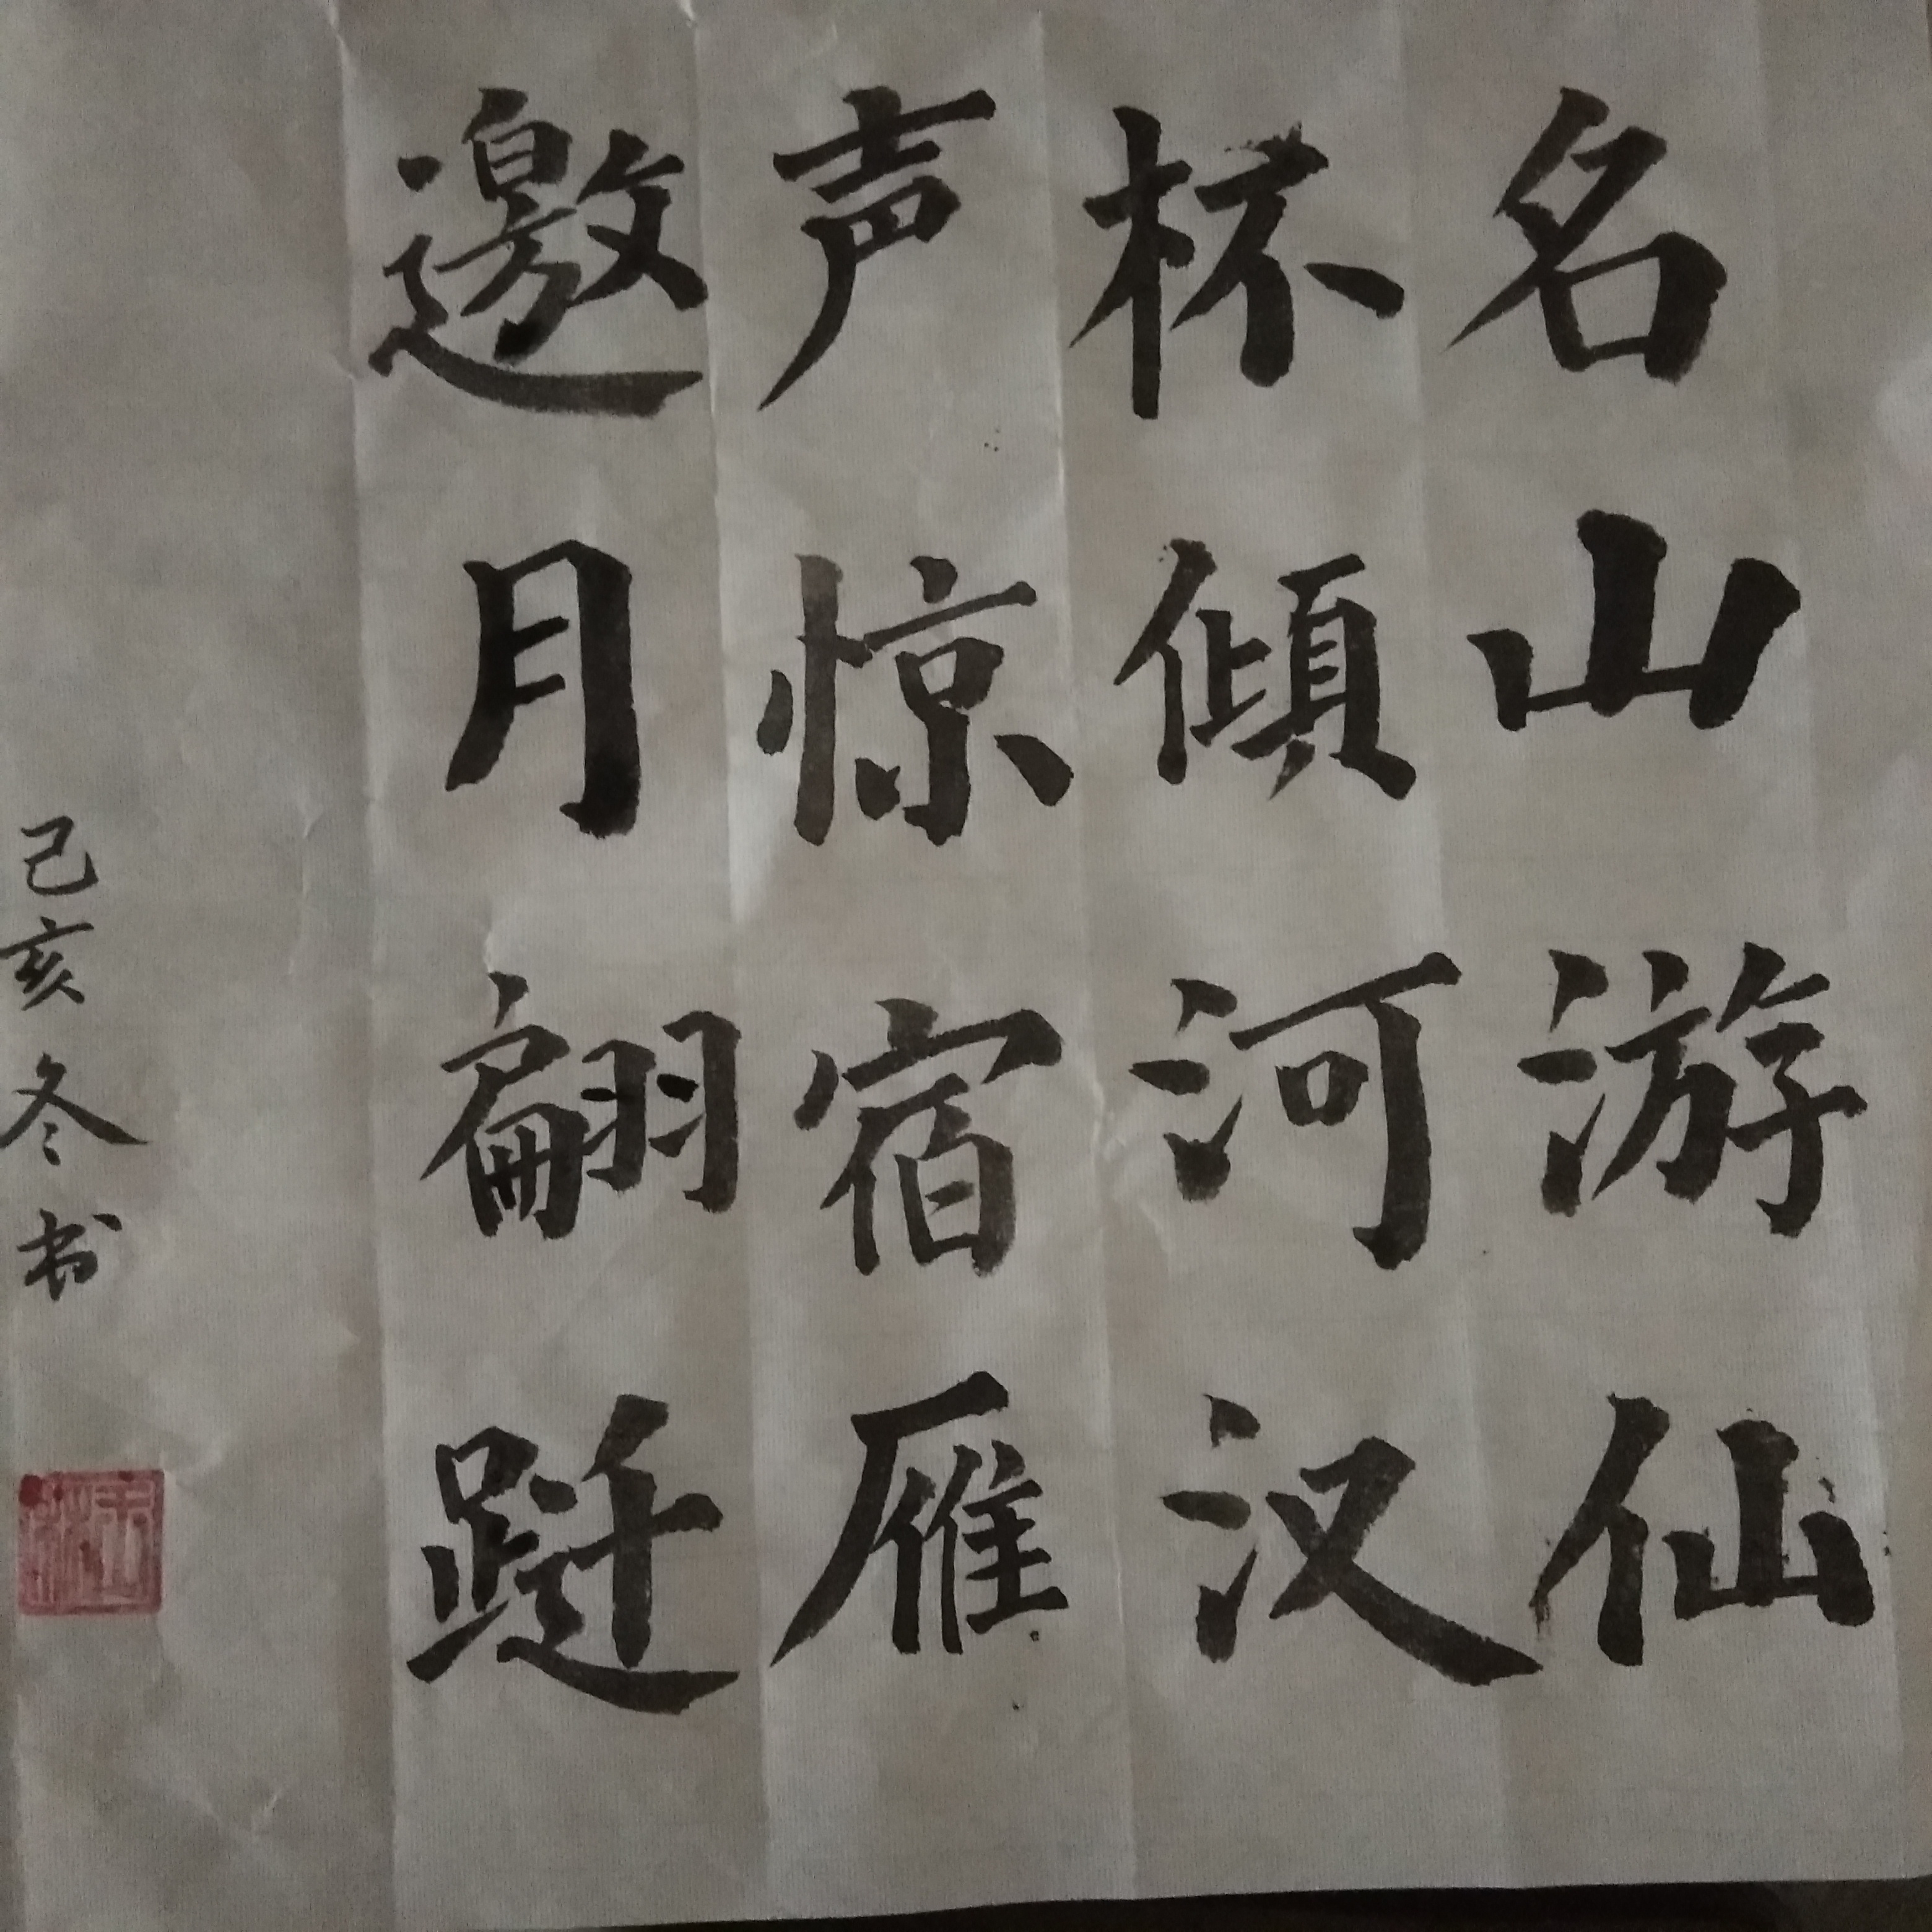 名山游仙
杯傾河汉
声惊宿雁
邀月翩跹
己亥冬书